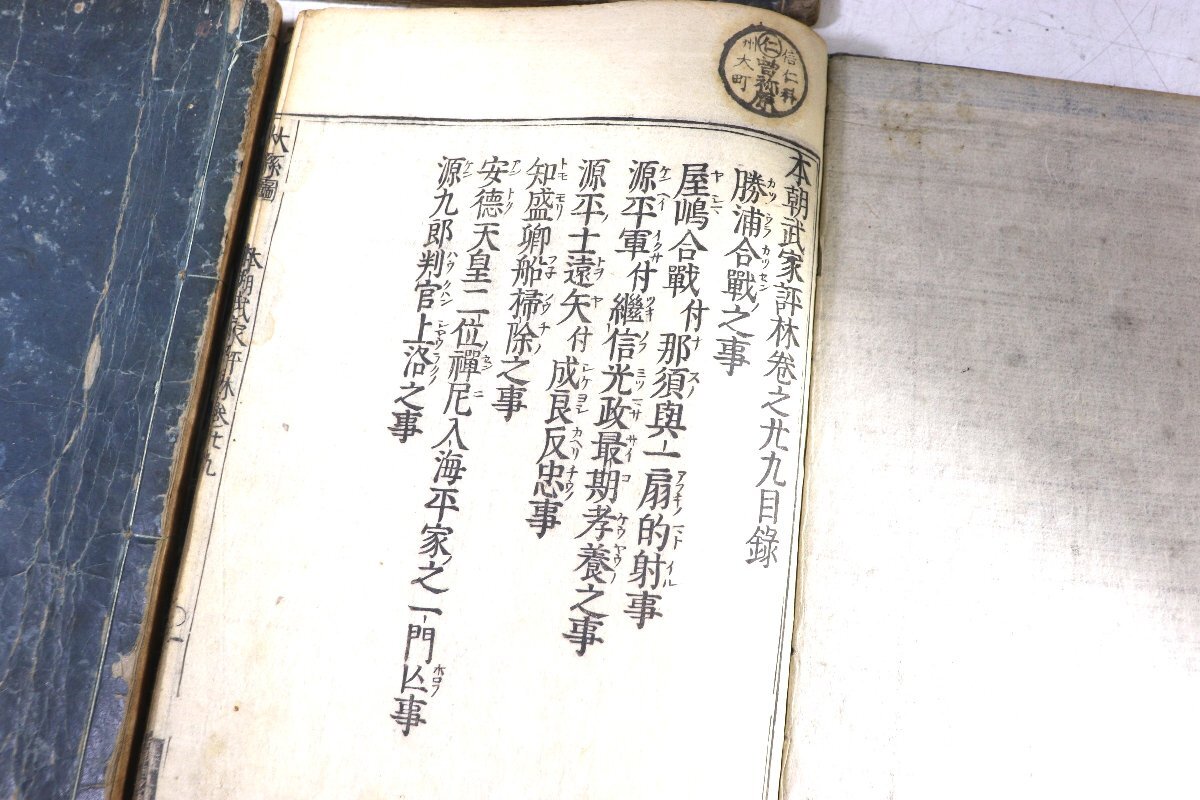 本朝武家評林卷之廾九目錄
勝浦合戰之事
屋嶋合戰付那須與一扇的射事
源平軍付繼信光政最期孝養之事
源平士遠矢付成良反忠事
知盛卿船掃除之事
安德天皇二位禪尼入海平家之一門亡事
源九郎判官上洛之事
本朝武家評林卷廿九
系圖
信州仁科大町
仁
曽祢原